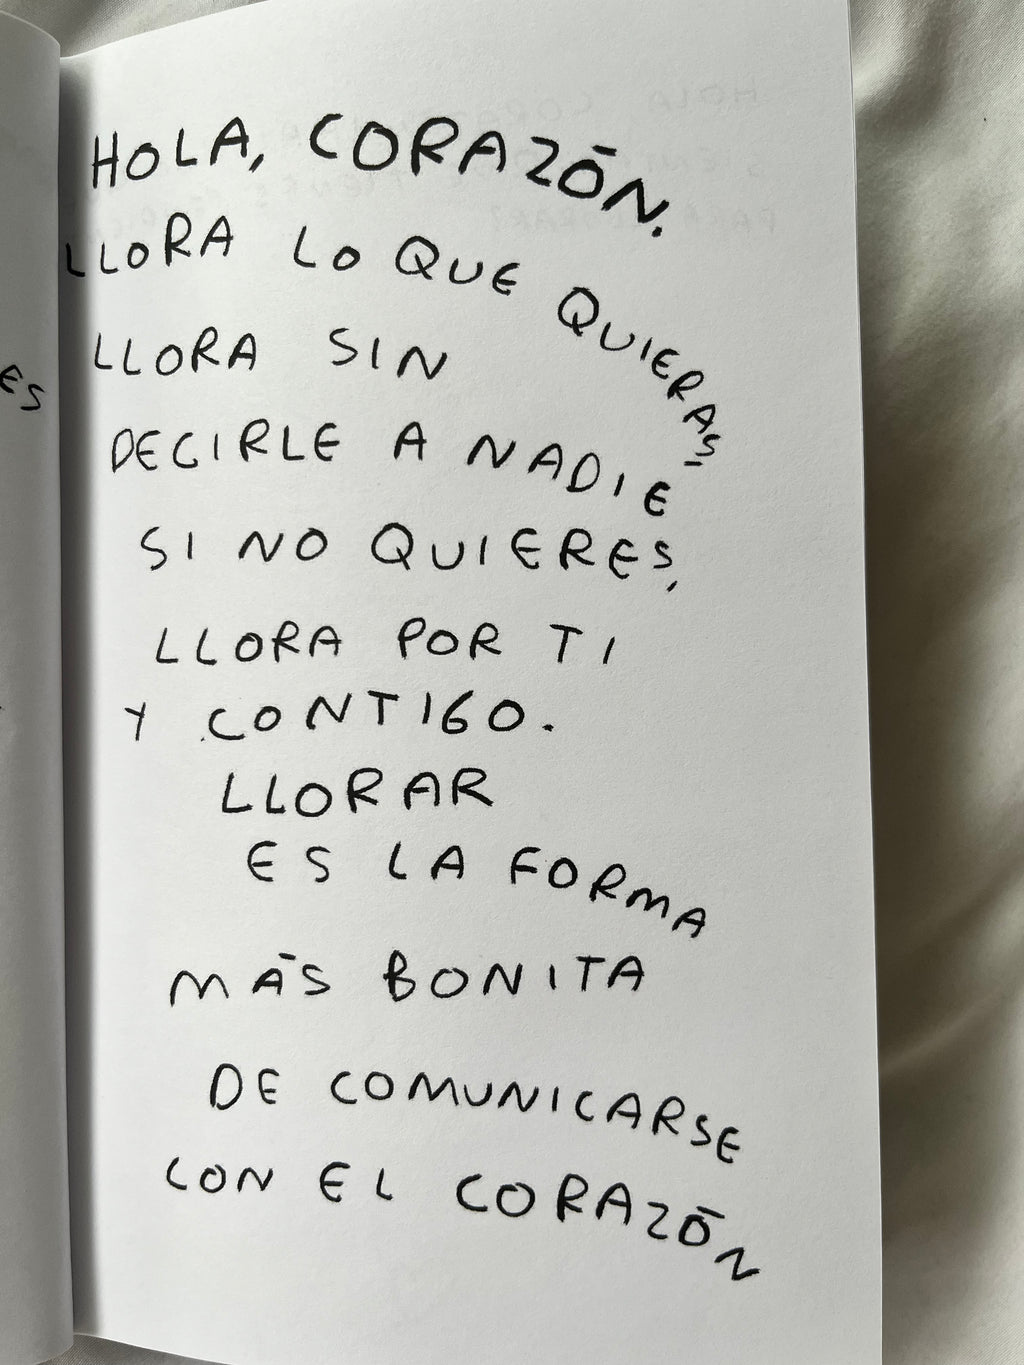 HOLA, CORAZÓN.
LLORA LO QUE QUIERAS,
LLORA SIN
DECIRLE A NADIE
SI NO QUIERES,
LLORA POR TI
Y CONTIGO.
LLORAR
ES LA FORMA
MÁS BONITA
DE COMUNICARSE
CON EL CORAZÓN